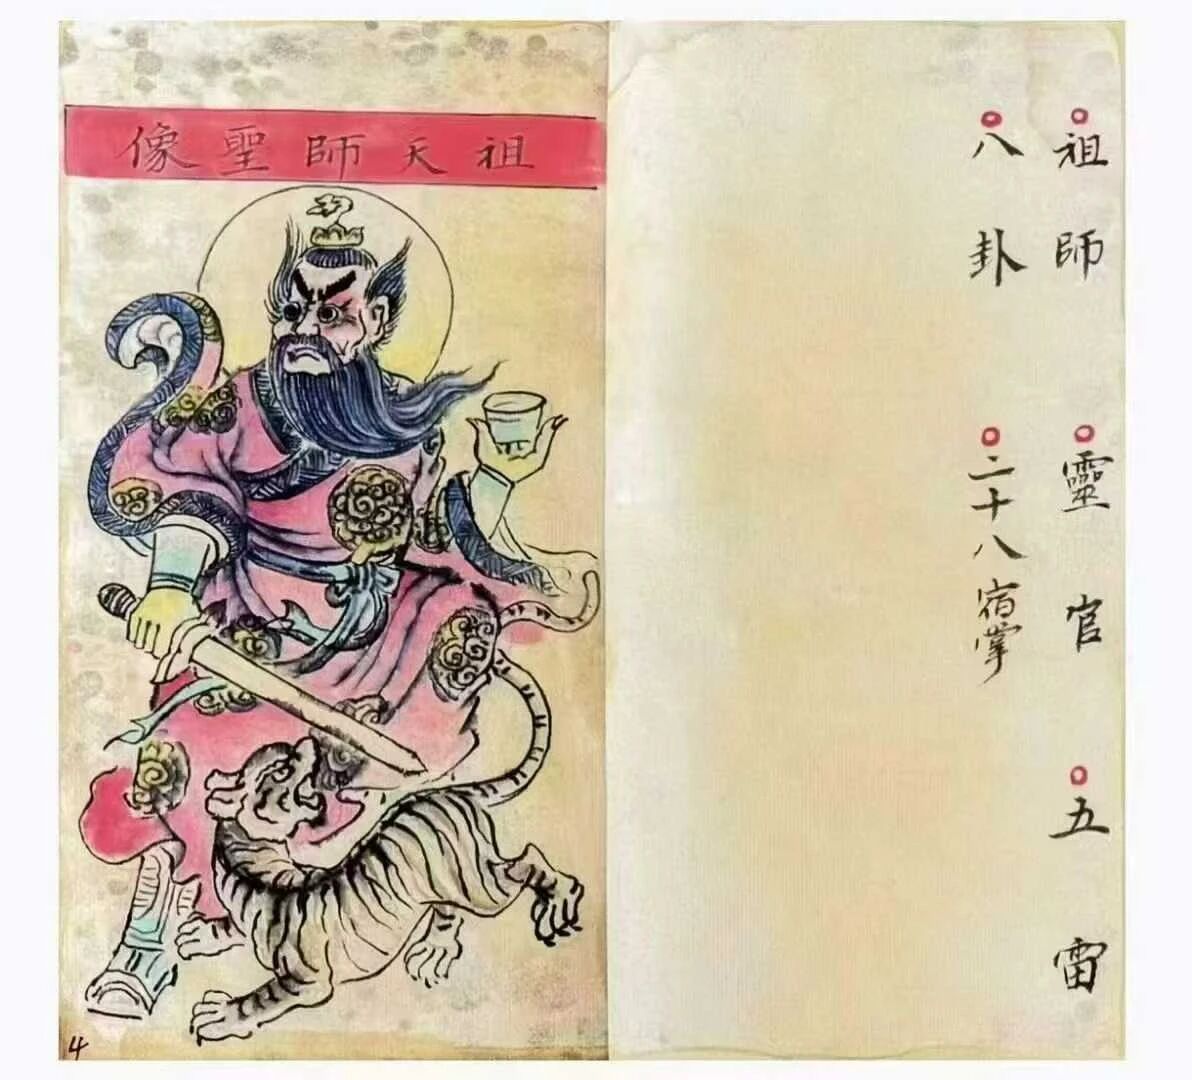 祖師 靈官 五雷
八卦 二十八宿掌
祖天師聖像
4